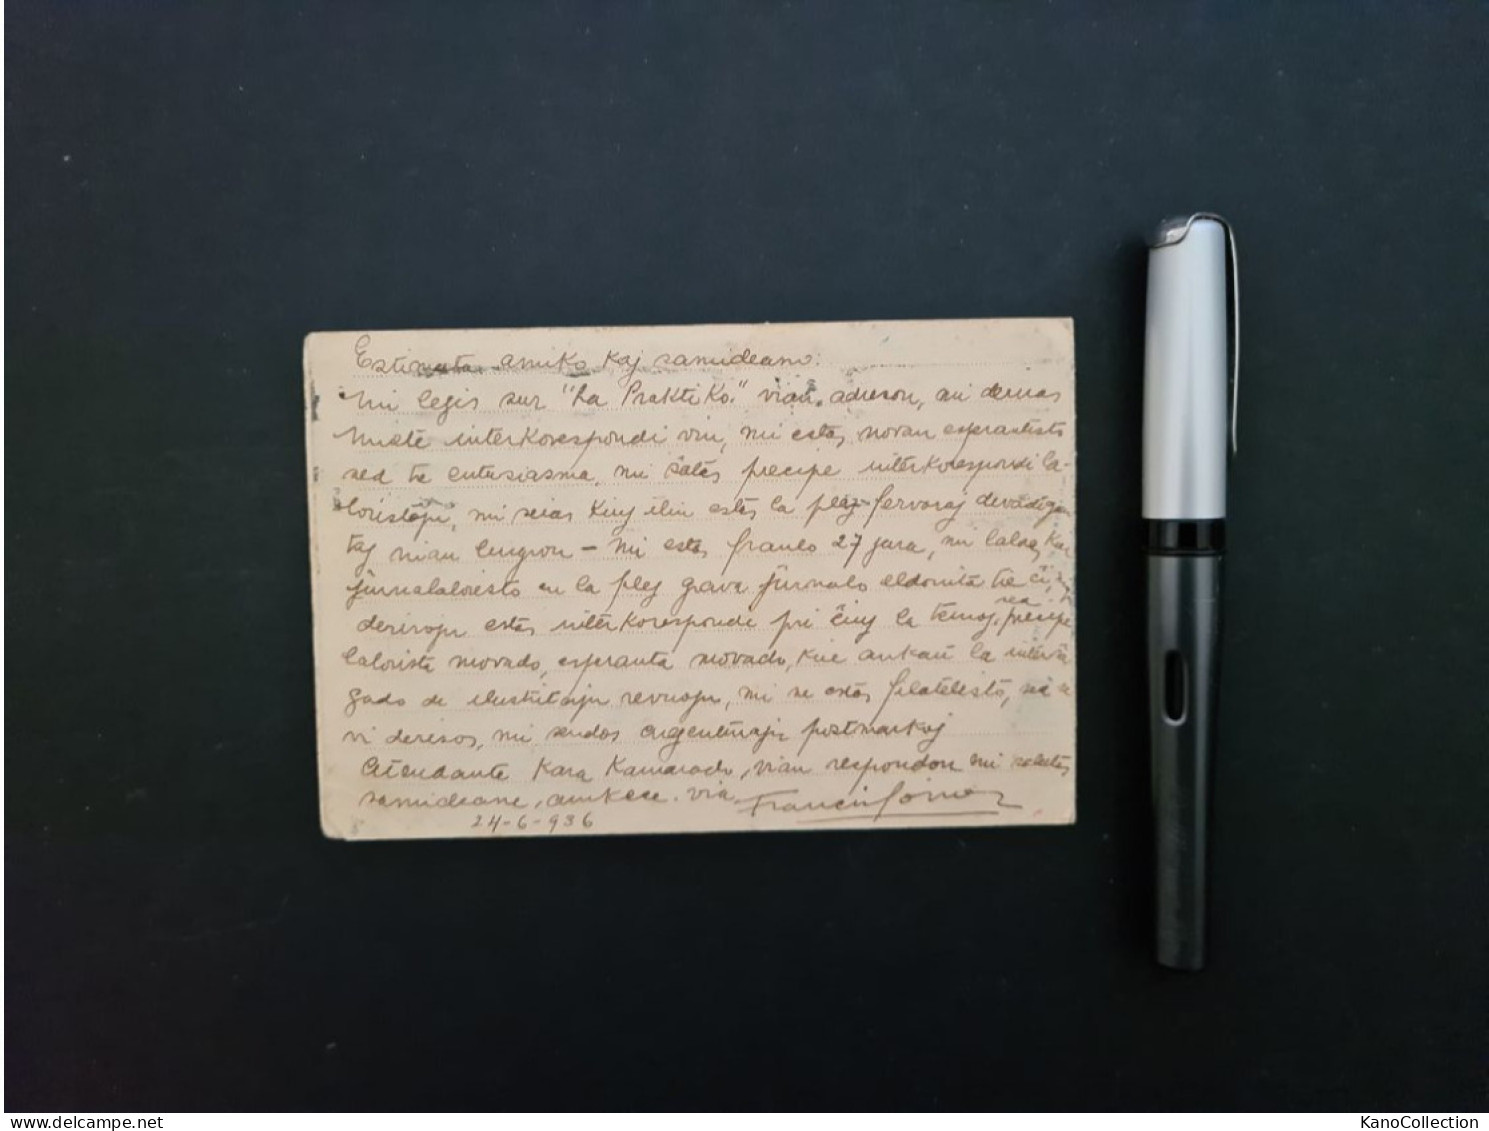 Estimata amiko kaj samideano:
Mi legis sur "La Praktiko." vian adreson, mi deziras
interkorespondi vin, mi estas novan esperantisto
sed tre entusiasma, mi ŝatas precipe interkorespondi la-
boristojn, mi scias kiuj ilin estas la plej fervoraj
taj nian lingvon - Mi estas fraulo 27 jara, mi
en la plej grava ĵurnalo eldonita tie ĉi,
estas interkorespondi pri ĉiuj la temoj, precipe
laborista movado, esperanta movado, kie ankaŭ la interŝan
gado de revuojn, mi ne estas filatelisto, sed se
vi deziros, mi sendos argentinajn postmarkoj
Atendante Kara Kamarado, vian respondon mi salutas
samideane, amikece. via
24-6-936
KanoCollection